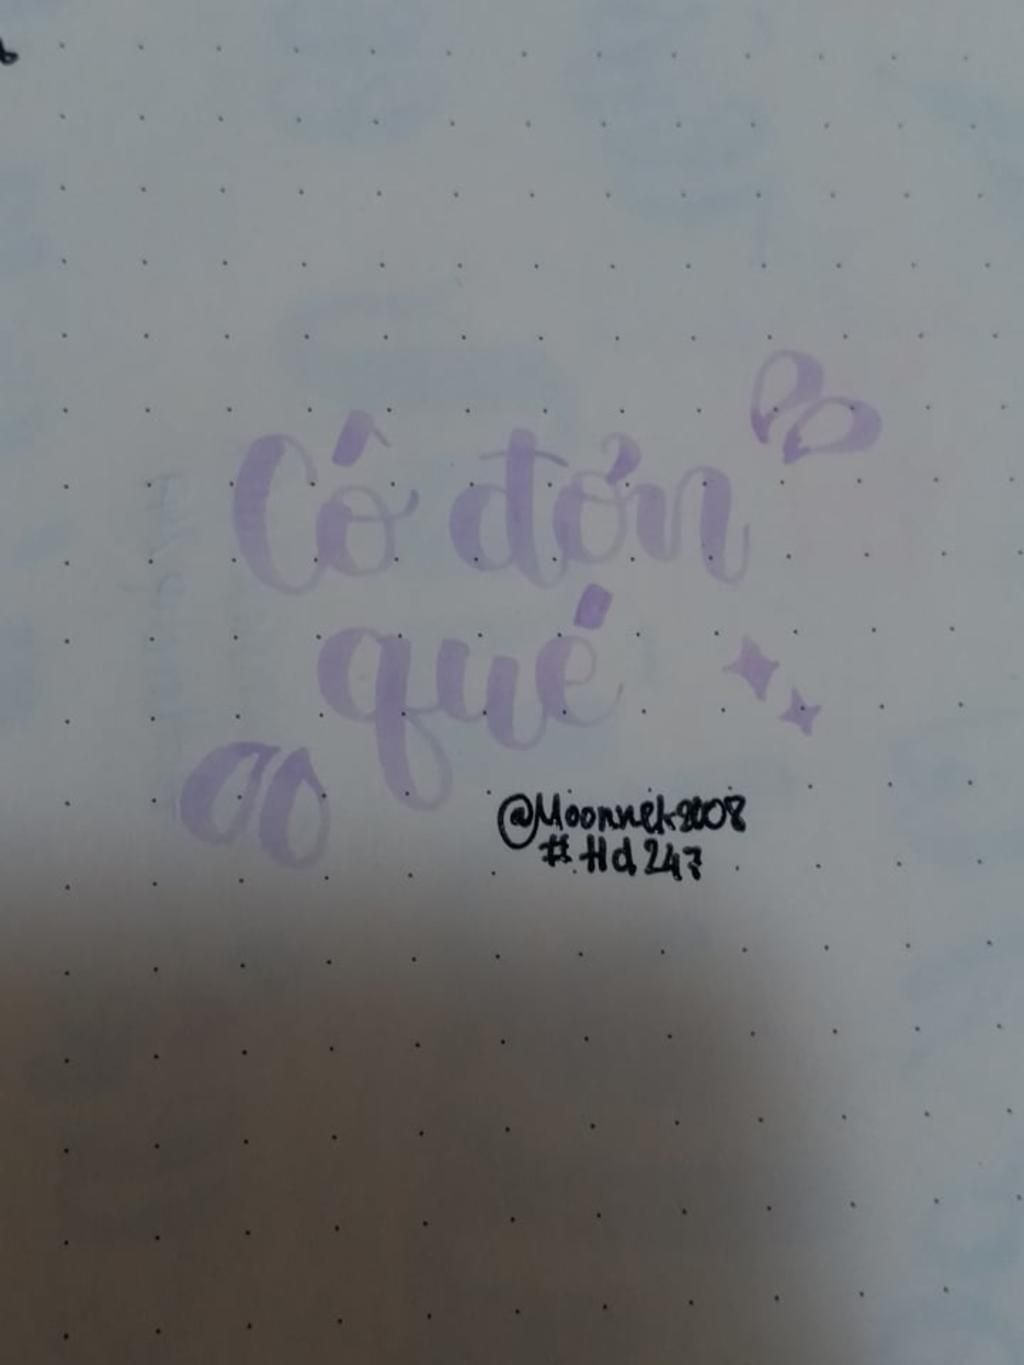 Cô đơn
qué
@Moonnek2008
#Hd247